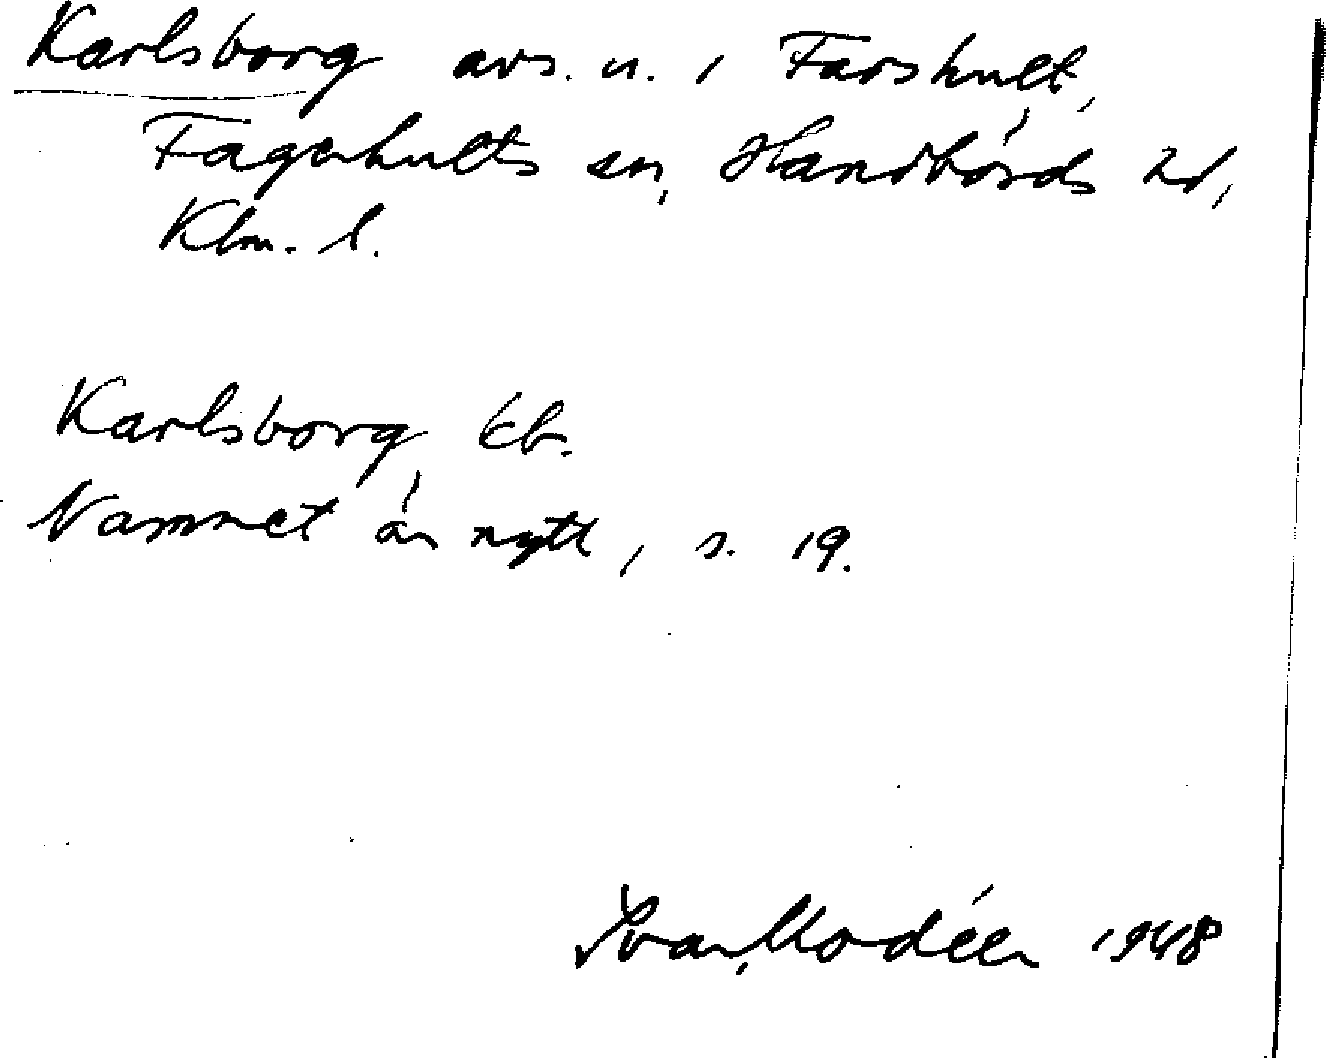 Karlsborg avs. u. i Farshult,
Fagerhults sn, Handbörds hd,
Klm. l.
Karlsborg kb.
Namnet är nytt, s. 19.
Ivar Modéer 1948